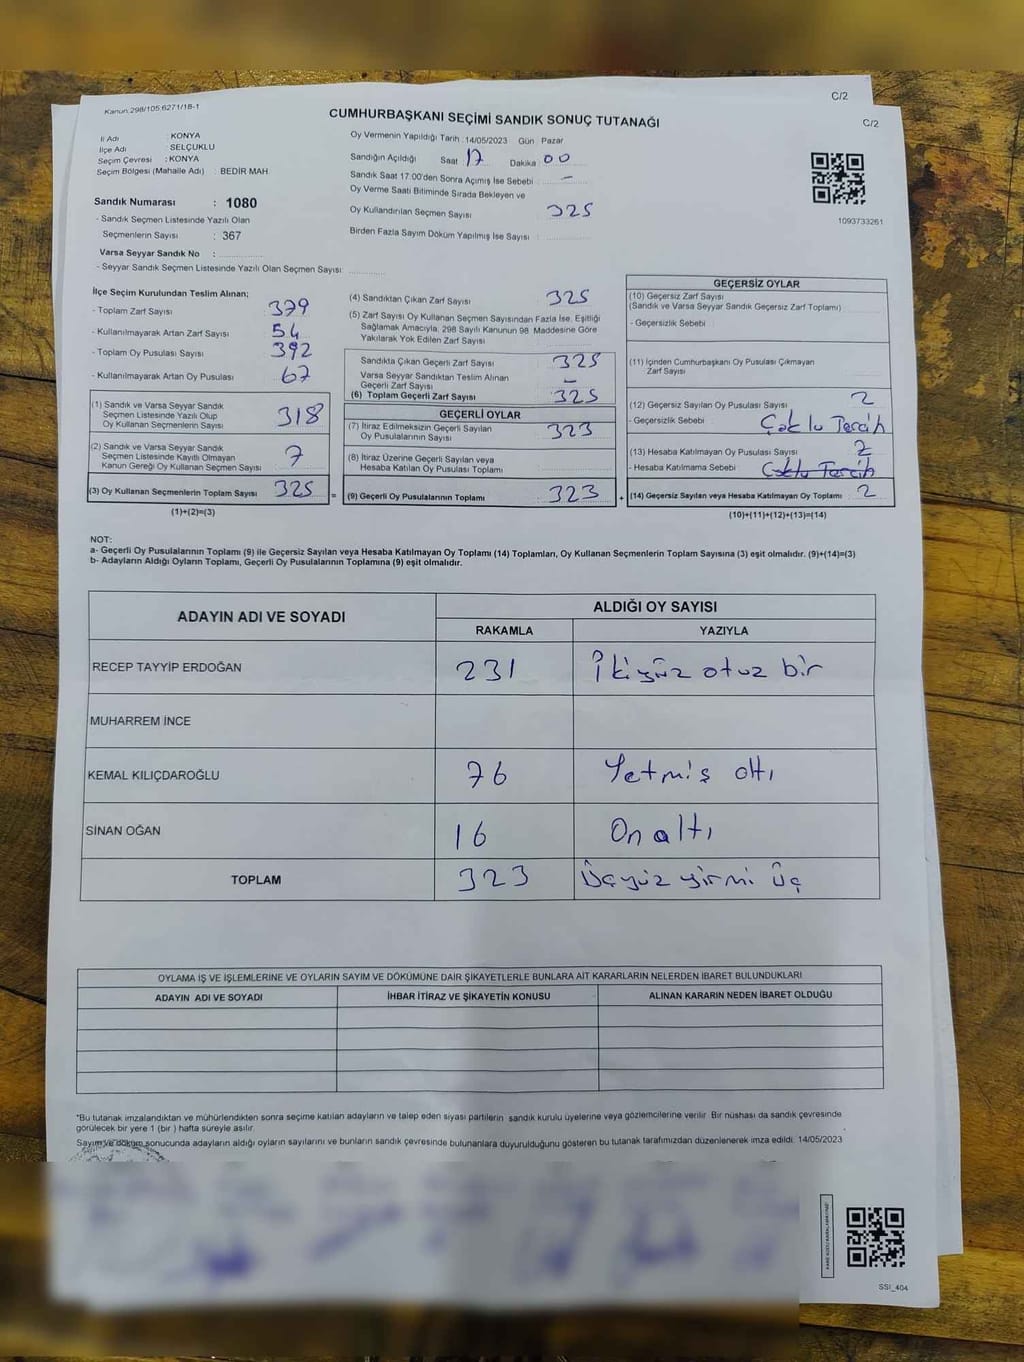 Kanun:298/105;6271/18-1
C/2
C/2
CUMHURBAŞKANI SEÇİMİ SANDIK SONUÇ TUTANAĞI
İl Adı : KONYA
İlçe Adı : SELÇUKLU
Seçim Çevresi : KONYA
Seçim Bölgesi (Mahalle Adı) : BEDİR MAH
Sandık Numarası : 1080
- Sandık Seçmen Listesinde Yazılı Olan
Seçmenlerin Sayısı : 367
Varsa Seyyar Sandık No :
- Seyyar Sandık Seçmen Listesinde Yazılı Olan Seçmen Sayısı:
Oy Vermenin Yapıldığı Tarih :14/05/2023 Gün :Pazar
Sandığın Açıldığı Saat 17 Dakika 00
Sandık Saat 17:00'den Sonra Açımış İse Sebebi : -
Oy Verme Saati Bitiminde Sırada Bekleyen ve
Oy Kullandırılan Seçmen Sayısı 325
Birden Fazla Sayım Döküm Yapılmış İse Sayısı :
1093733261
İlçe Seçim Kurulundan Teslim Alınan;
- Toplam Zarf Sayısı : 379
- Kullanılmayarak Artan Zarf Sayısı : 54
- Toplam Oy Pusulası Sayısı : 392
- Kullanılmayarak Artan Oy Pusulası : 67
(1) Sandık ve Varsa Seyyar Sandık
Seçmen Listesinde Yazılı Olup
Oy Kullanan Seçmenlerin Sayısı 318
(2) Sandık ve Varsa Seyyar Sandık
Seçmen Listesinde Kayıtlı Olmayan
Kanun Gereği Oy Kullanan Seçmen Sayısı 7
(3) Oy Kullanan Seçmenlerin Toplam Sayısı 325 =
(1)+(2)=(3)
(4) Sandıktan Çıkan Zarf Sayısı 325
(5) Zarf Sayısı Oy Kullanan Seçmen Sayısından Fazla İse, Eşitliği
Sağlamak Amacıyla, 298 Sayılı Kanunun 98. Maddesine Göre
Yakılarak Yok Edilen Zarf Sayısı
Sandıkta Çıkan Geçerli Zarf Sayısı 325
Varsa Seyyar Sandıktan Teslim Alınan
Geçerli Zarf Sayısı -
(6) Toplam Geçerli Zarf Sayısı 325
GEÇERLİ OYLAR
(7) İtiraz Edilmeksizin Geçerli Sayılan
Oy Pusulalarının Sayısı 323
(8) İtiraz Üzerine Geçerli Sayılan veya
Hesaba Katılan Oy Pusulası Toplamı
(9) Geçerli Oy Pusulalarının Toplamı 323 +
GEÇERSİZ OYLAR
(10) Geçersiz Zarf Sayısı
(Sandık ve Varsa Seyyar Sandık Geçersiz Zarf Toplamı)
- Geçersizlik Sebebi
(11) İçinden Cumhurbaşkanı Oy Pusulası Çıkmayan
Zarf Sayısı
(12) Geçersiz Sayılan Oy Pusulası Sayısı 2
- Geçersizlik Sebebi Çoklu Tercih
(13) Hesaba Katılmayan Oy Pusulası Sayısı 2
- Hesaba Katılmama Sebebi Çoklu Tercih
(14) Geçersiz Sayılan veya Hesaba Katılmayan Oy Toplamı 2
(10)+(11)+(12)+(13)=(14)
NOT:
a- Geçerli Oy Pusulalarının Toplamı (9) ile Geçersiz Sayılan veya Hesaba Katılmayan Oy Toplamı (14) Toplamları, Oy Kullanan Seçmenlerin Toplam Sayısına (3) eşit olmalıdır. (9)+(14)=(3)
b- Adayların Aldığı Oyların Toplamı, Geçerli Oy Pusulalarının Toplamına (9) eşit olmalıdır.
ADAYIN ADI VE SOYADI
ALDIĞI OY SAYISI
RAKAMLA YAZIYLA
RECEP TAYYİP ERDOĞAN 231 İkiyüz otuz bir
MUHARREM İNCE
KEMAL KILIÇDAROĞLU 76 Yetmiş altı
SİNAN OĞAN 16 On altı
TOPLAM 323 Üçyüz yirmi üç
OYLAMA İŞ VE İŞLEMLERİNE VE OYLARIN SAYIM VE DÖKÜMÜNE DAİR ŞİKAYETLERLE BUNLARA AİT KARARLARIN NELERDEN İBARET BULUNDUKLARI
ADAYIN ADI VE SOYADI İHBAR İTİRAZ VE ŞİKAYETİN KONUSU ALINAN KARARIN NEDEN İBARET OLDUĞU
*Bu tutanak imzalandıktan ve mühürlendikten sonra seçime katılan adayların ve talep eden siyasi partilerin sandık kurulu üyelerine veya gözlemcilerine verilir. Bir nüshası da sandık çevresinde
görülecek bir yere 1 (bir ) hafta süreyle asılır.
Sayım ve döküm sonucunda adayların aldığı oyların sayılarını ve bunların sandık çevresinde bulunanlara duyurulduğunu gösteren bu tutanak tarafımızdan düzenlenerek imza edildi. 14/05/2023
SSI_404